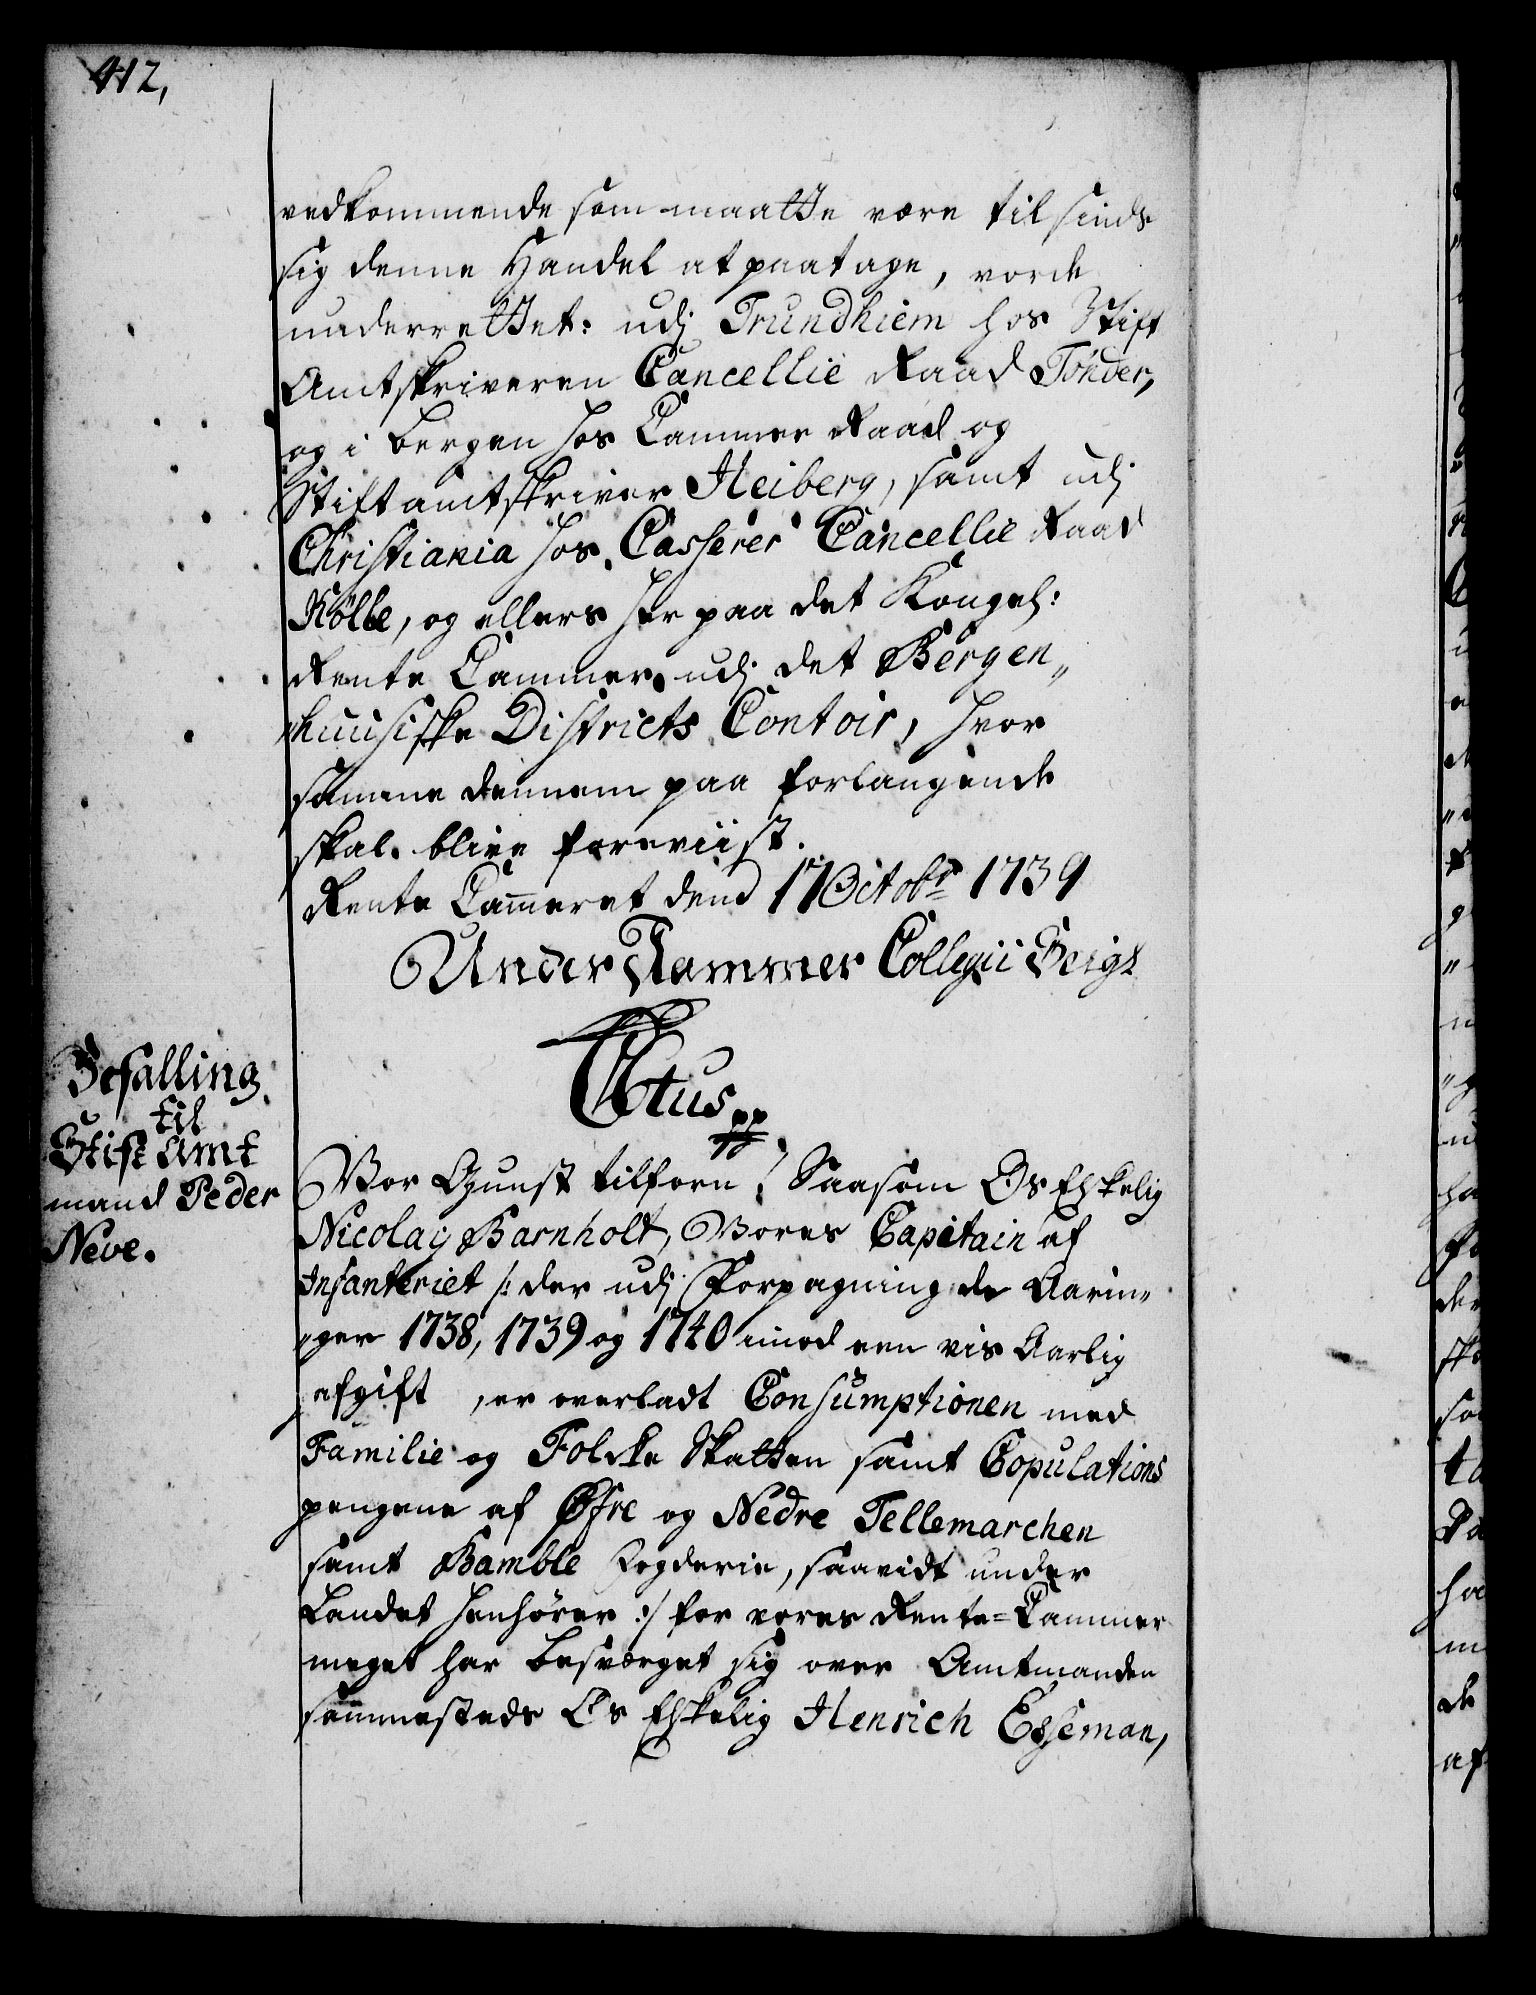 412,
vedkommende som maatte være til sinds
sig denne Handel at paatage, vorde
underrettet: udj Trundhiem hos Stift
Amtskriveren Cancellie Raad Tönder,
og i Bergen hos Cammer Raad og
Stiftamtskriver Heiberg, samt udj
Christiania hos Casserer Cancellie Raad
Kölle, og ellers her paa det Kongel:
Rente Cammer udj det Bergen„
„huusiske Districts Contoir, hvor
samme dennem paa forlangende
skal blive foreviist.
Rente Cammeret dend 17 Octobr 1739
Under Kammer Collegii Seigl
Befalling
til
Stift Amt
mand Peder
Neve.
C6tus pp
Vor Gunst tilforn, Saasom Os Elskelig
Nicolaij Barnholt, Vores Capitain af
Infanteriet /: der udj Forpagning de Aarin„
„ger 1738, 1739 og 1740 imod een vis Aarlig
afgift, er overladt Consumptionen med
Familie og Folcke Skatten samt Copulations
pengene af Øfre og Nedre Tellemarchen
samt Bamble Fogderie, saavidt under
Landet henhører :/ for vores Rente=Cammer
meget har besværget sig over Amtmanden
sammesteds Os Elskelig Henrich Esseman,